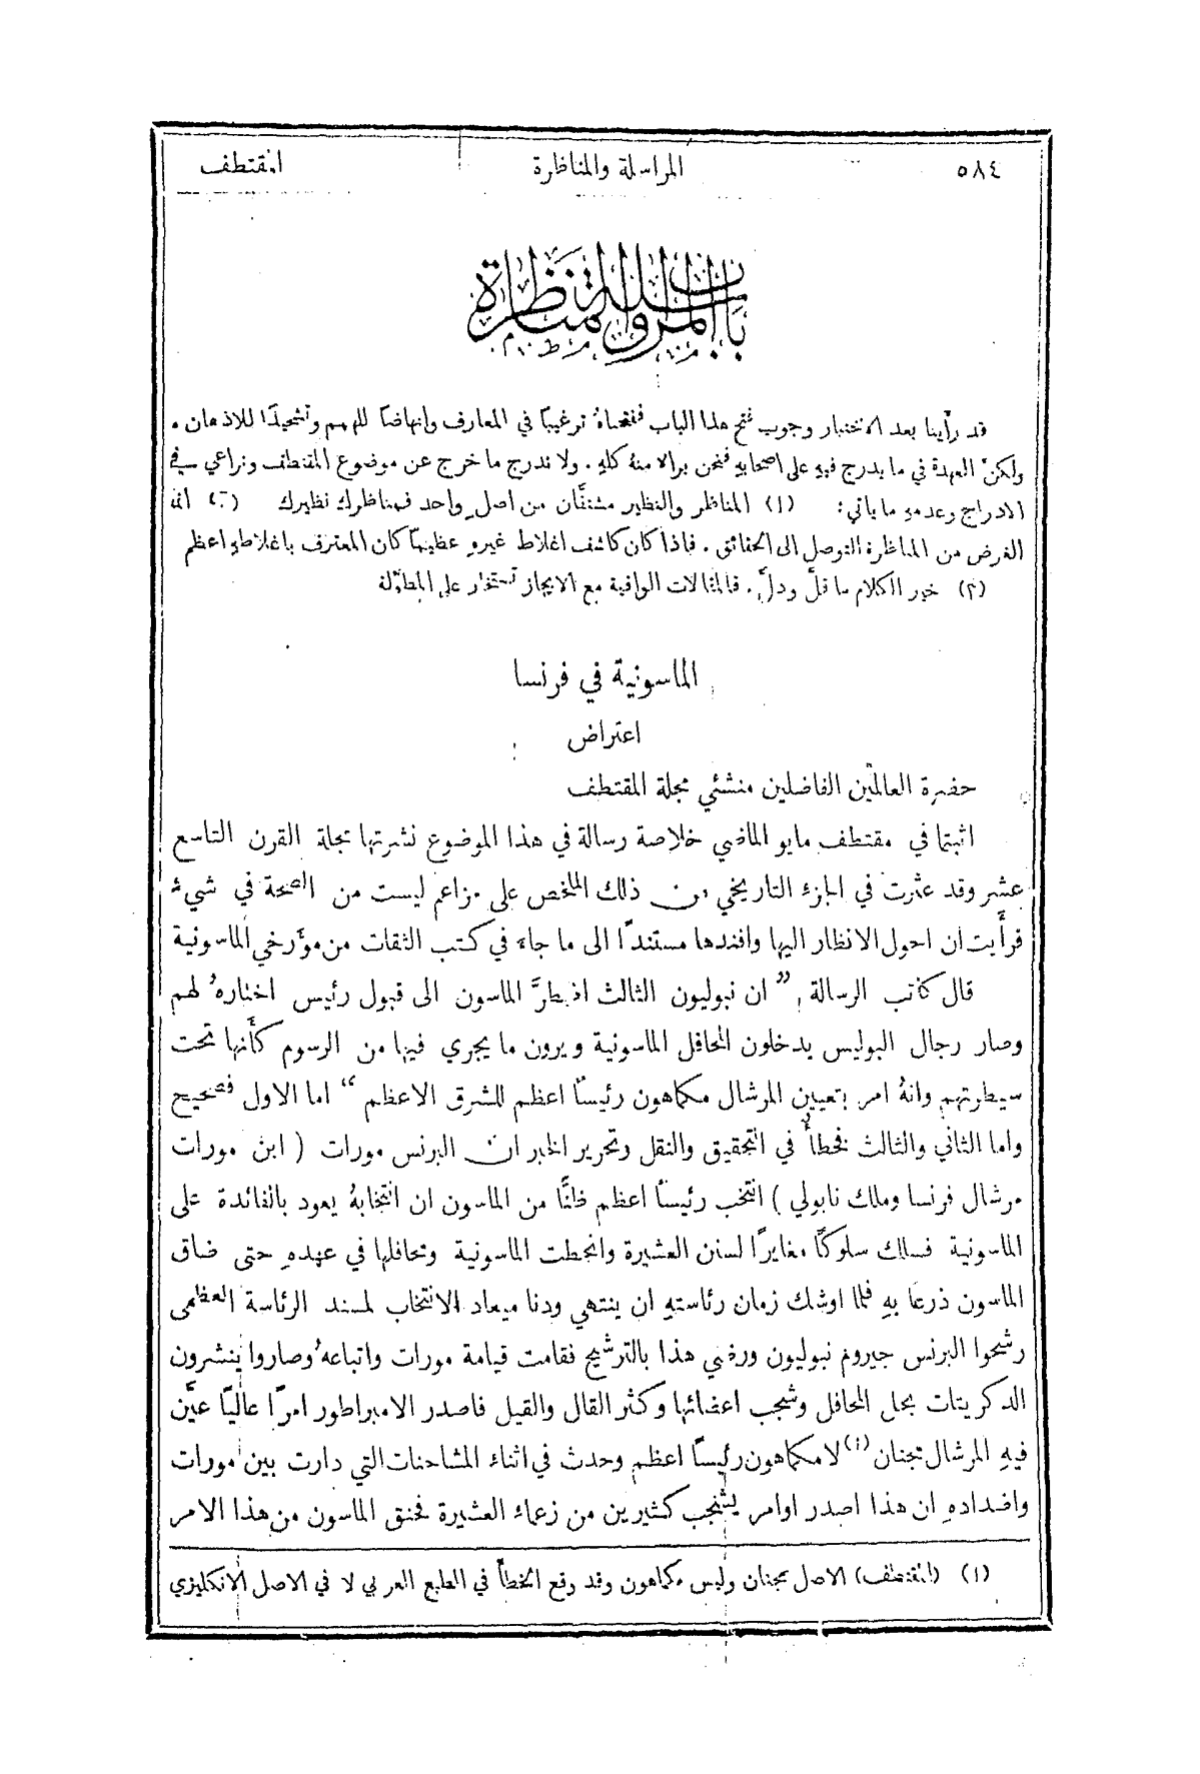 ٥٨٤ المراسلة والمناظرة المقتطف
باب المراسلة والمناظرة
قد رأينا بعد الاختبار وجوب فتح هذا الباب ففتحناهُ ترغيبًا في المعارف وانهاضًا للهمم وتشحيذًا للاذهان .
ولكنَّ العهدة في ما يدرج فيهِ على اصحابهِ فنحن برالا منهُ كلهِ . ولا ندرج ما خرج عن موضوع المقتطف ونراعي في
الادراج وعدمهِ ما يأتي : (١) المناظر والنظير مشتقَّان من اصلٍ واحد فمناظرك نظيرك (٢) انما
الغرض من المناظرة التوصل الى الحقائق . فاذا كان كاشف اغلاط غيرهِ عظيمًا كان المعترف باغلاطهِ اعظم
(٣) خير الكلام ما قلَّ ودلَّ . فالمقالات الوافية مع الايجاز تستخار على المطوَّلة
الماسونية في فرنسا
اعتراض
حضرة العالمَين الفاضلين منشئي مجلة المقتطف
اثبتما في مقتطف مايو الماضي خلاصة رسالة في هذا الموضوع نشرتها مجلة القرن التاسع
عشر وقد عثرت في الجزء التاريخي من ذلك الملخص على مزاعم ليست من الصحة في شيء
فرأَيت ان احول الانظار اليها وافندها مستندًا الى ما جاء في كتب الثقات من مؤَرخي الماسونية
قال كاتب الرسالة " ان نبوليون الثالث اضطرَّ الماسون الى قبول رئيس اختارهُ لهم
وصار رجال البوليس يدخلون المحافل الماسونية ويرون ما يجري فيها من الرسوم كأَنها تحت
سيطرتهم وانهُ امر بتعيين المرشال مكماهون رئيسًا اعظم للشرق الاعظم " اما الاول فصحيح
واما الثاني والثالث فخطأٌ في التحقيق والنقل وتحرير الخبر ان البرنس مورات ( ابن مورات
مرشال فرنسا وملك نابولي ) انتخب رئيسًا اعظم ظنًّا من الماسون ان انتخابهُ يعود بالفائدة على
الماسونية فسلك سلوكًا مغايرًا لسنن العشيرة وانحطت الماسونية ومحافلها في عهدهِ حتى ضاق
الماسون ذرعًا بهِ فلما اوشك زمان رئاستهِ ان ينتهي ودنا ميعاد الانتخاب لمسند الرئاسة العظمى
رشحوا البرنس جيروم نبوليون ورضي هذا بالترشيح فقامت قيامة مورات واتباعهُ وصاروا ينشرون
الدكريتات بحل المحافل وشجب اعضائها وكثر القال والقيل فاصدر الامبراطور امرًا عاليًا عيَّن
فيهِ المرشال مجنان (١) لا مكماهون رئيسًا اعظم وحدث في اثناء المشاحنات التي دارت بين مورات
واضدادهِ ان هذا اصدر اوامر بشجب كثيرين من زعماء العشيرة فحنق الماسون من هذا الامر
(١) (المقتطف) الاصل مجنان وليس مكماهون وقد وقع الخطأُ في الطبع العربي لا في الاصل الانكليزي